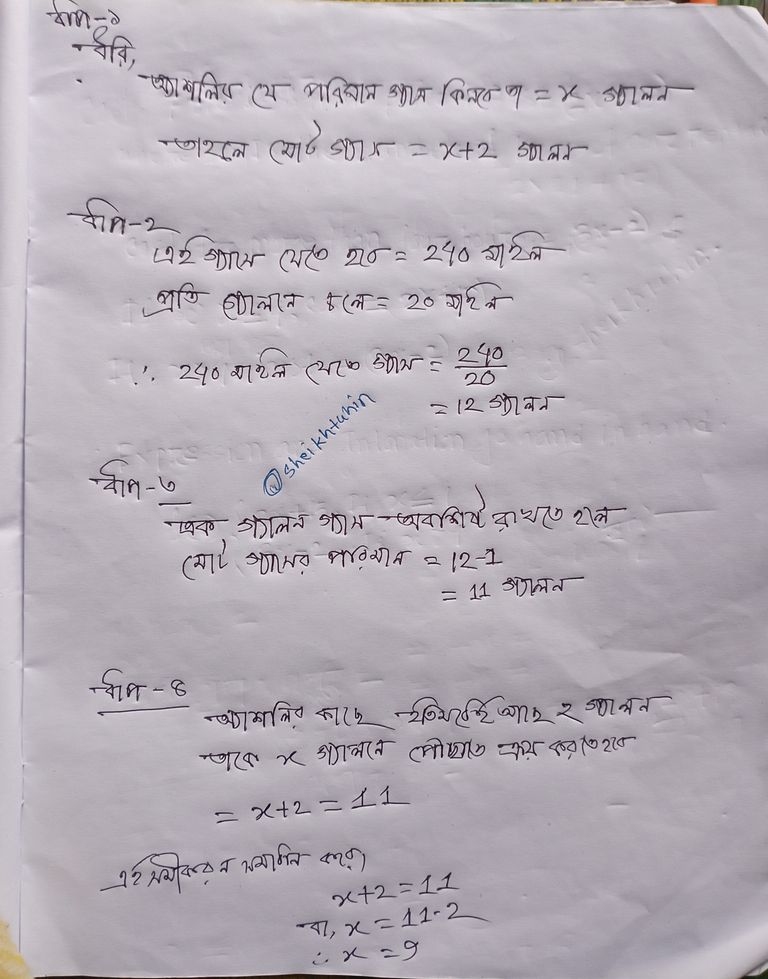 ধাপ-১
ধরি,
অ্যাশলির যে পরিমান গ্যাস কিনবে তা = x গ্যালন
তাহলে মোট গ্যাস = x+2 গ্যালন
ধাপ-2
এই গ্যাসে যেতে হবে = 240 মাইল
প্রতি গ্যালনে চলে = 20 মাইল
∴ 240 মাইল যেতে গ্যাস = 240/20
= 12 গ্যালন
@sheikhtuhin
ধাপ-৩
এক গ্যালন গ্যাস অবশিষ্ট রাখতে হলে
মোট গ্যাসের পরিমান = 12-1
= 11 গ্যালন
ধাপ-৪
অ্যাশলির কাছে ইতিমধ্যেই আছে ২ গ্যালন
তাকে x গ্যালনে পৌছাতে ক্রয় করতে হবে
= x+2 = 11
এই সমীকরন সমাধান করে,
x+2 = 11
বা, x = 11-2
∴ x = 9